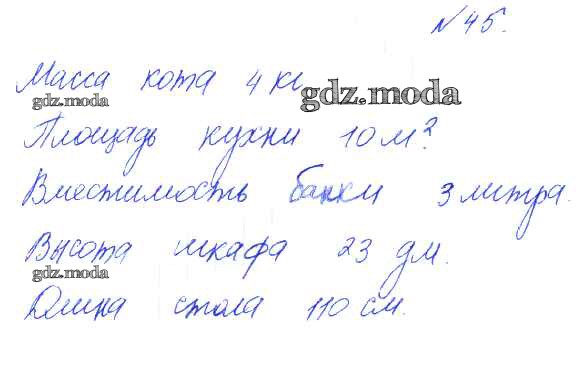 №45.
Масса кота 4 кг
gdz.moda
gdz.moda
Площадь кухни 10 м².
Вместимость банки 3 литра.
Высота шкафа 23 дм.
gdz.moda
Длина стола 110 см.